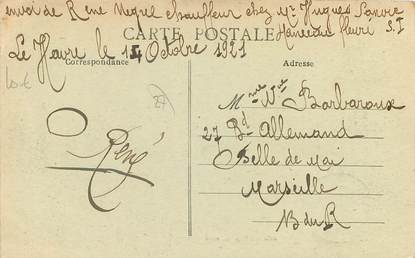 envoi de René Negrel chauffeur chez Mr Hugues
Hameau fleuri S. I
CARTE POSTALE
Le Havre le 14 Octobre 1921
Correspondance
Adresse
Mme Vve Barbaroux
27 Bd Allemand
Belle de Mai
Marseille
B du R
René